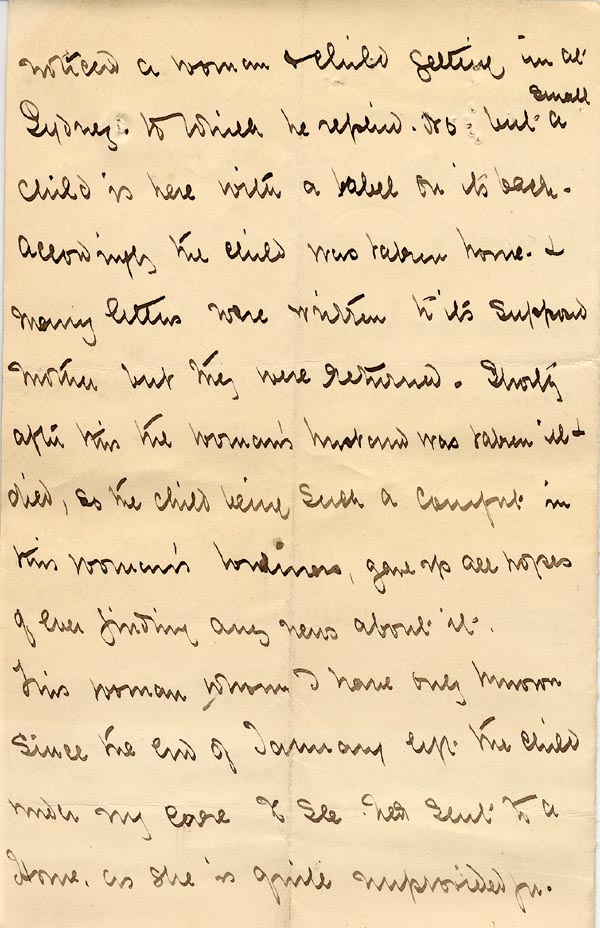 noticed a woman & child getting in at
Sydney. to which he replied. No. but a small
child is here with a label on its back.
Accordingly the child was taken home. &
many letters were written to its supposed
mother but they were returned. Shortly
after this the woman's husband was taken ill &
died, so the child being such a comfort in
this woman's loneliness, gave up all hopes
of ever finding any news about it.
This woman whom I have only known
since the end of January left the child
under my care to see her sent to a
Home, as she is quite unprovided for.